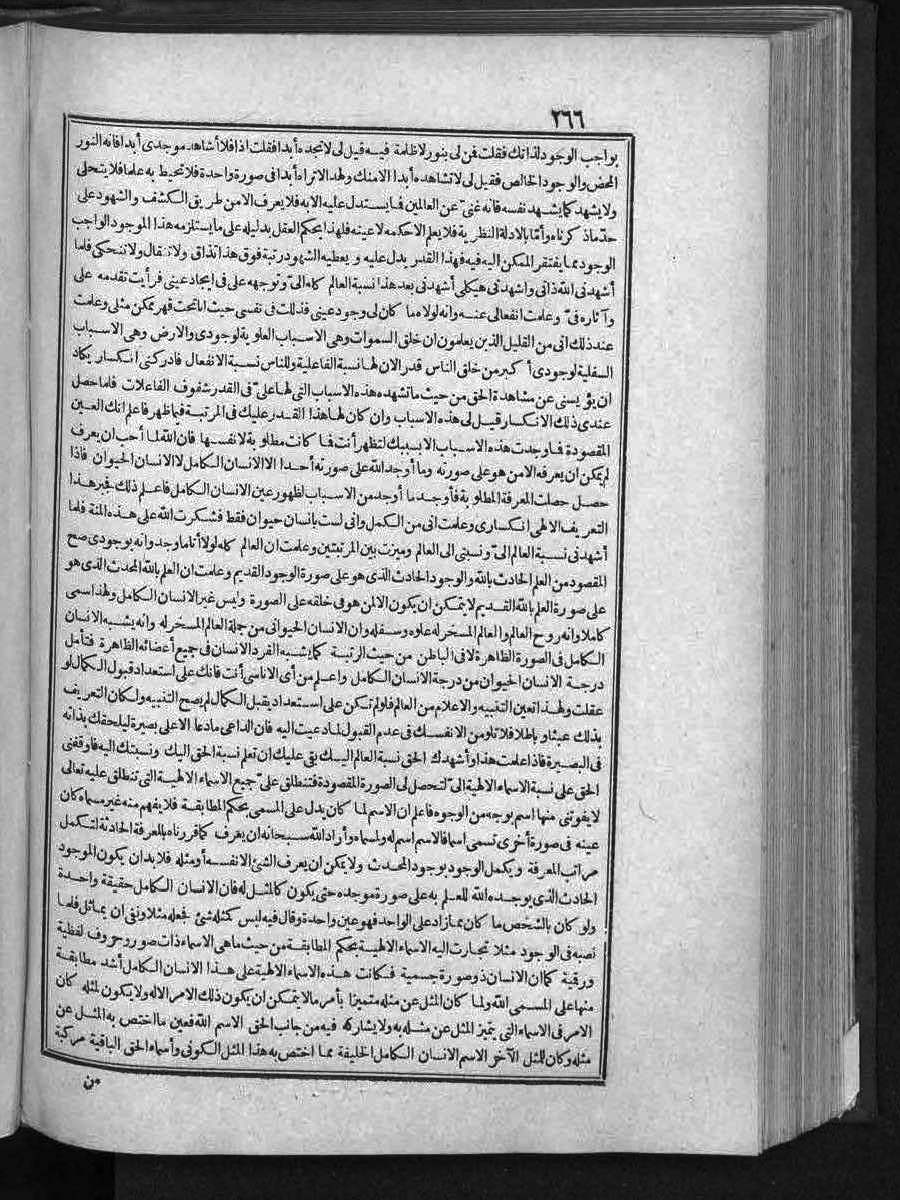 ٢٦٦
بواجب الوجود لذاتك فقلت فمن لى بنور لا ظلمة فيه قيل لى لا تجده أبدا فقلت اذا فلا أشاهد موجدى أبدا فانه النور
المحض والوجود الخالص فقيل لى لا تشاهده أبدا الا منك ولهذا لا تراه أبدا فى صورة واحدة فلا تحيط به علما فلا يتجلى
ولا يشهد كما يشهد نفسه فانه غنىّ عن العالمين فما يستدل عليه الا به فلا يعرف الا من طريق الكشف والشهود على
حدّ ما ذكرناه وأمّا بالادلة النظرية فلا يعلم الا حكمه لا عينه فلهذا يحكم العقل بدليله على ما يستلزمه هذا الموجود الواجب
الوجود مما يفتقر الممكن اليه فيه فهذا القدر يدل عليه ويعطيه الشهود رتبة فوق هذا تذاق ولا تنقال ولا تنحكى فلما
أشهدنى الله ذاتى وأشهدنى هيكلى أشهدنى بعد هذا نسبة العالم كله الىّ وتوجهه على فى ايجاد عينى فرأيت تقدمه على
وآثاره فىّ وعلمت انفعالى عنه وانه لولاه ما كان لى وجود عينى فذللت فى نفسى حيث انا تحت قهر ممكن مثلى وعلمت
عند ذلك انى من القليل الذين يعلمون ان خلق السموات وهى الاسباب العلوية لوجودى والارض وهى الاسباب
السفلية لوجودى أكبر من خلق الناس قدر الان لها نسبة الفاعلية وللناس نسبة الانفعال فادركنى انكسار يكاد
ان يؤيسنى عن مشاهدة الحق من حيث ما تشهده هذه الاسباب التى لها علىّ فى القدر شفوف الفاعلات فلما حصل
عندى ذلك الانكسار قيل لى هذه الاسباب وان كان لها هذا القدر عليك فى المرتبة فيما ظهر فاعلم انك العين
المقصودة فما وجدت هذه الاسباب الا بسببك لتظهر أنت فما كانت مطلوبة لانفسها فان الله لما أحب ان يعرف
لم يمكن ان يعرفه الا من هو على صورته وما أوجد الله على صورته أحدا الا الانسان الكامل لا الانسان الحيوان فاذا
حصل حصلت المعرفة المطلوبة فأوجد ما أوجد من الاسباب لظهور عين الانسان الكامل فاعلم ذلك فجبر هذا
التعريف الالهى انكسارى وعلمت انى من الكمل وانى لست بانسان حيوان فقط فشكرت الله على هذه المنة فلما
أشهدنى نسبة العالم الىّ ونسبتى الى العالم وميزت بين المرتبتين وعلمت ان العالم كله لولا أنا ما وجد وانه بوجودى صح
المقصود من العلم الحادث بالله والوجود الحادث الذى هو على صورة الوجود القديم وعلمت ان العلم بالله المحدث الذى هو
على صورة العلم بالله القديم لا يتمكن ان يكون الا لمن هو فى خلقه على الصورة وليس غير الانسان الكامل ولهذا سمى
كاملا وانه روح العالم والعالم المسخر له علوه وسفله وان الانسان الحيوانى من جملة العالم المسخر له وانه يشبه الانسان
الكامل فى الصورة الظاهرة لا فى الباطن من حيث الرتبة كما يشبه القرد الانسان فى جميع أعضائه الظاهرة فتأمل
درجة الانسان الحيوان من درجة الانسان الكامل واعلم من أى الاناسى أنت فانك على استعداد قبول الكمال لو
عقلت ولهذا تعين التنبيه والاعلام من العالم فلو لم تكن على استعداد يقبل الكمال لم يصح التنبيه ولكان التعريف
بذلك عبثا وباطلا فلا تلومن الا نفسك فى عدم القبول لما دعيت اليه فان الداعى ما دعا الا على بصيرة ليلحقك بذاته
فى البصيرة فاذا علمت هذا وأشهدك الحق نسبة العالم اليك بقى عليك ان تعلم نسبة الحق اليك ونسبتك اليه فاوقفنى
الحق على نسبة الاسماء الالهية الىّ لتحصل لى الصورة المقصودة فتنطلق علىّ جميع الاسماء الالهية التى تنطلق عليه تعالى
لا يفوتنى منها اسم بوجه من الوجوه فاعلم ان الاسم لما كان يدل على المسمى بحكم المطابقة فلا يفهم منه غير مسماه كان
عينه فى صورة أخرى تسمى اسما فالاسم اسم له ولمسماه وأراد الله سبحانه ان يعرف كما قررناه بالمعرفة الحادثة لتكمل
مراتب المعرفة ويكمل الوجود بوجود المحدث ولا يمكن ان يعرف الشئ الا نفسه أو مثله فلا بد ان يكون الموجود
الحادث الذى يوجده الله للعلم به على صورة موجده حتى يكون كالمثل له فان الانسان الكامل حقيقة واحدة
ولو كان بالشخص ما كان مما زاد على الواحد فهو عين واحدة وقال فيه ليس كمثله شئ فجعله مثلا ونفى ان يماثل فلما
نصبه فى الوجود مثلا تجارت اليه الاسماء الالهية بحكم المطابقة من حيث ما هى الاسماء ذات صور وحروف لفظية
ورقمية كما ان الانسان ذو صورة جسمية فكانت هذه الاسماء الالهية على هذا الانسان الكامل أشد مطابقة
منها على المسمى الله ولما كان المثل عن مثله متميزا بأمر ما لا يتمكن ان يكون ذلك الامر الا له ولا يكون لمثله كان
الامر فى الاسماء التى يتميز المثل عن مثله به ولا يشاركه فيه من جانب الحق الاسم الله فعين ما اختص به المثل عن
مثله وكان للمثل الآخر الاسم الانسان الكامل الخليفة مما اختص به هذا المثل الكونى وأسماء الحق الباقية مركبة
من